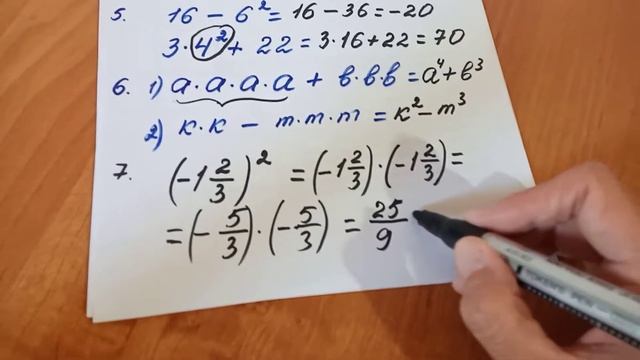 5. 16 - 6² = 16 - 36 = -20
3 · 4² + 22 = 3 · 16 + 22 = 70
6. 1) a · a · a · a + в · в · в = a⁴ + в³
2) к · к - m · m · m = к² - m³
7. (-1 2/3)² = (-1 2/3) · (-1 2/3) =
= (- 5/3) · (- 5/3) = 25/9